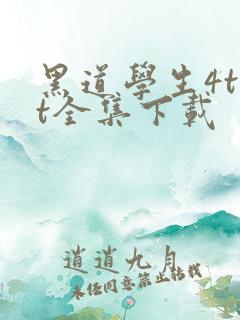 黑道學生4t
t全集下載
逍逍九月
未经同意禁止转载